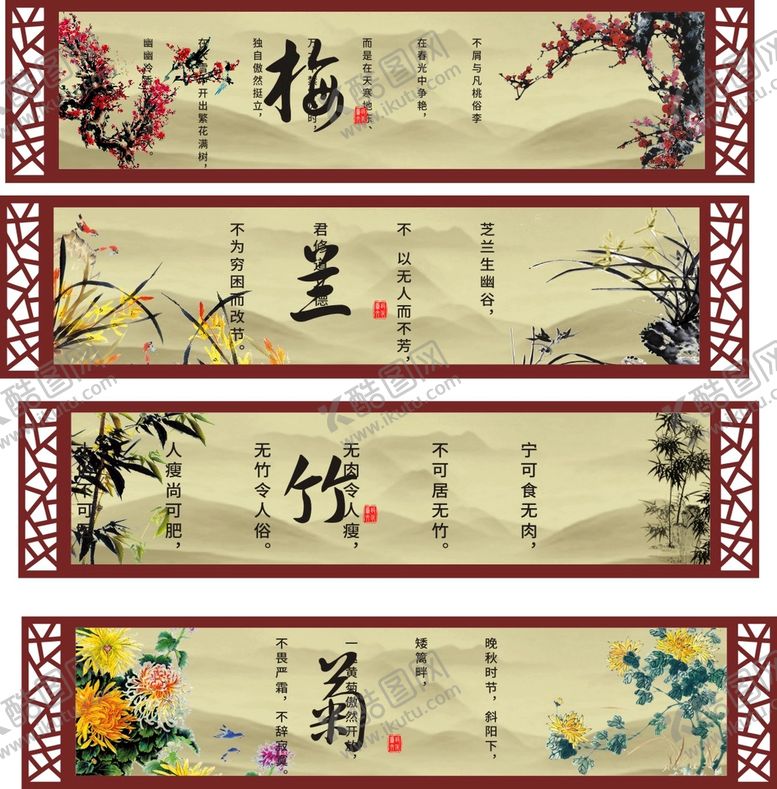 不屑与凡桃俗李
在春光中争艳，
而是在天寒地
时，
独自傲然挺立，
开出繁花满树，
幽幽冷
梅
芝兰生幽谷，
不 以无人而不芳，
君修 德
不为穷困而改节。
兰
宁可食无肉，
不可居无竹。
无肉令人瘦，
无竹令人俗。
人瘦尚可肥，
不可
竹
晚秋时节，斜阳下，
矮篱畔，
一 黄菊傲然开放，
不畏严霜，不辞寂寞。
菊
酷图网
www.ikutu.com